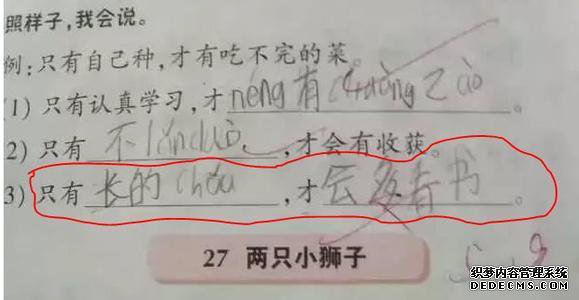 照样子,我会说。
例:只有自己种,才有吃不完的菜。
(1) 只有认真学习,才néng有chuàng zào。
2) 只有不lǎn duò,才会有收获。
3) 只有长的chǒu,才会多看书。
27 两只小狮子
织梦内容管理系统
DEDECMS.COM